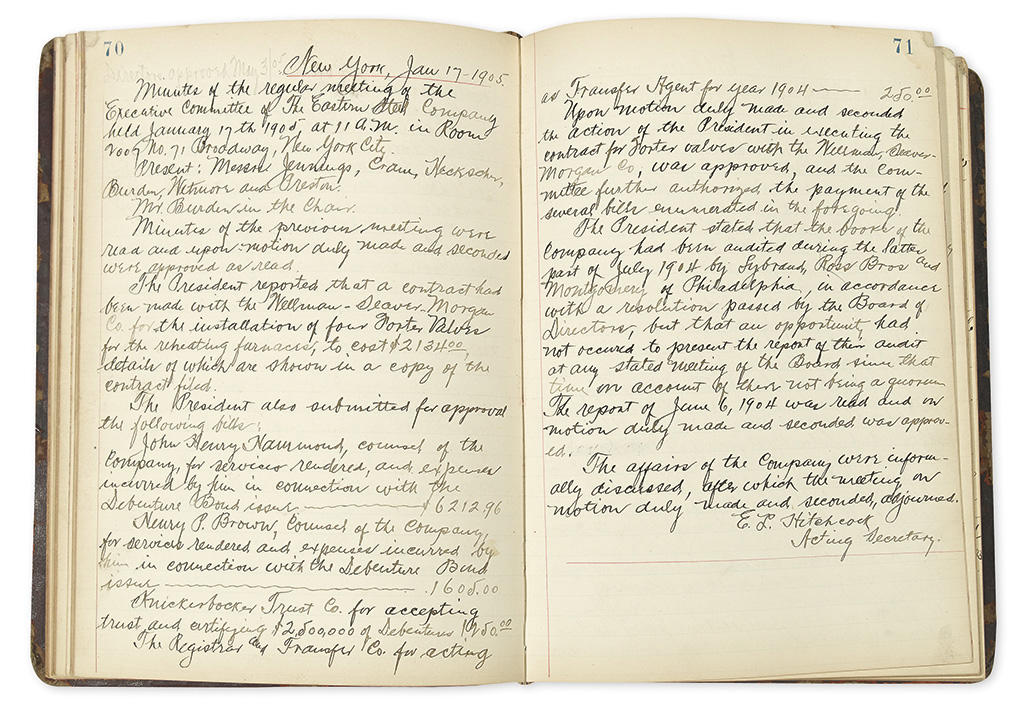 70
Directors approved May 3/05
New York, Jan 17-1905.
Minutes of the regular meeting of the
Executive Committee of The Eastern Steel Company
held January 17th 1905 at 11 A.M. in Room
2007 No. 71 Broadway, New York City.
Present: Messrs Jennings, Crane, Heckscher,
Burden, Wetmore and Preston.
Mr. Burden in the Chair.
Minutes of the previous meeting were
read and upon motion duly made and seconded
were approved as read.
The President reported that a contract had
been made with the Wellman-Seaver-Morgan
Co. for the installation of four Forter Valves
for the reheating furnaces, to cost $2134.00,
details of which are shown in a copy of the
contract filed.
The President also submitted for approval
the following bills:
John Henry Hammond, counsel of the
Company, for services rendered, and expenses
incurred by him in connection with the
Debenture Bond issue — $6212.96
Henry P. Brown, Counsel of the Company,
for services rendered and expenses incurred by
him in connection with the Debenture Bond
issue — 1605.00
Knickerbocker Trust Co. for accepting
trust and certifying $2,500,000 of Debentures 1250.00
The Registrar and Transfer Co. for acting
71
as Transfer Agent for year 1904 — 250.00
Upon motion duly made and seconded
the action of the President in executing the
contract for Forter valves with the Wellman, Seaver-
Morgan Co, was approved, and the Com-
mittee further authorized the payment of the
several bills enumerated in the foregoing.
The President stated that the books of the
Company had been audited during the latter
part of July 1904 by Lybrand, Ross Bros and
Montgomery of Philadelphia, in accordance
with a resolution passed by the Board of
Directors, but that an opportunity had
not occured to present the report of this audit
at any stated meeting of the Board since that
time on account of there not being a quorum
The report of June 6, 1904 was read and on
motion duly made and seconded was approv-
ed.
The affairs of the Company were inform-
ally discussed, after which the meeting on
motion duly made and seconded, adjourned.
E. L. Hitchcock
Acting Secretary.